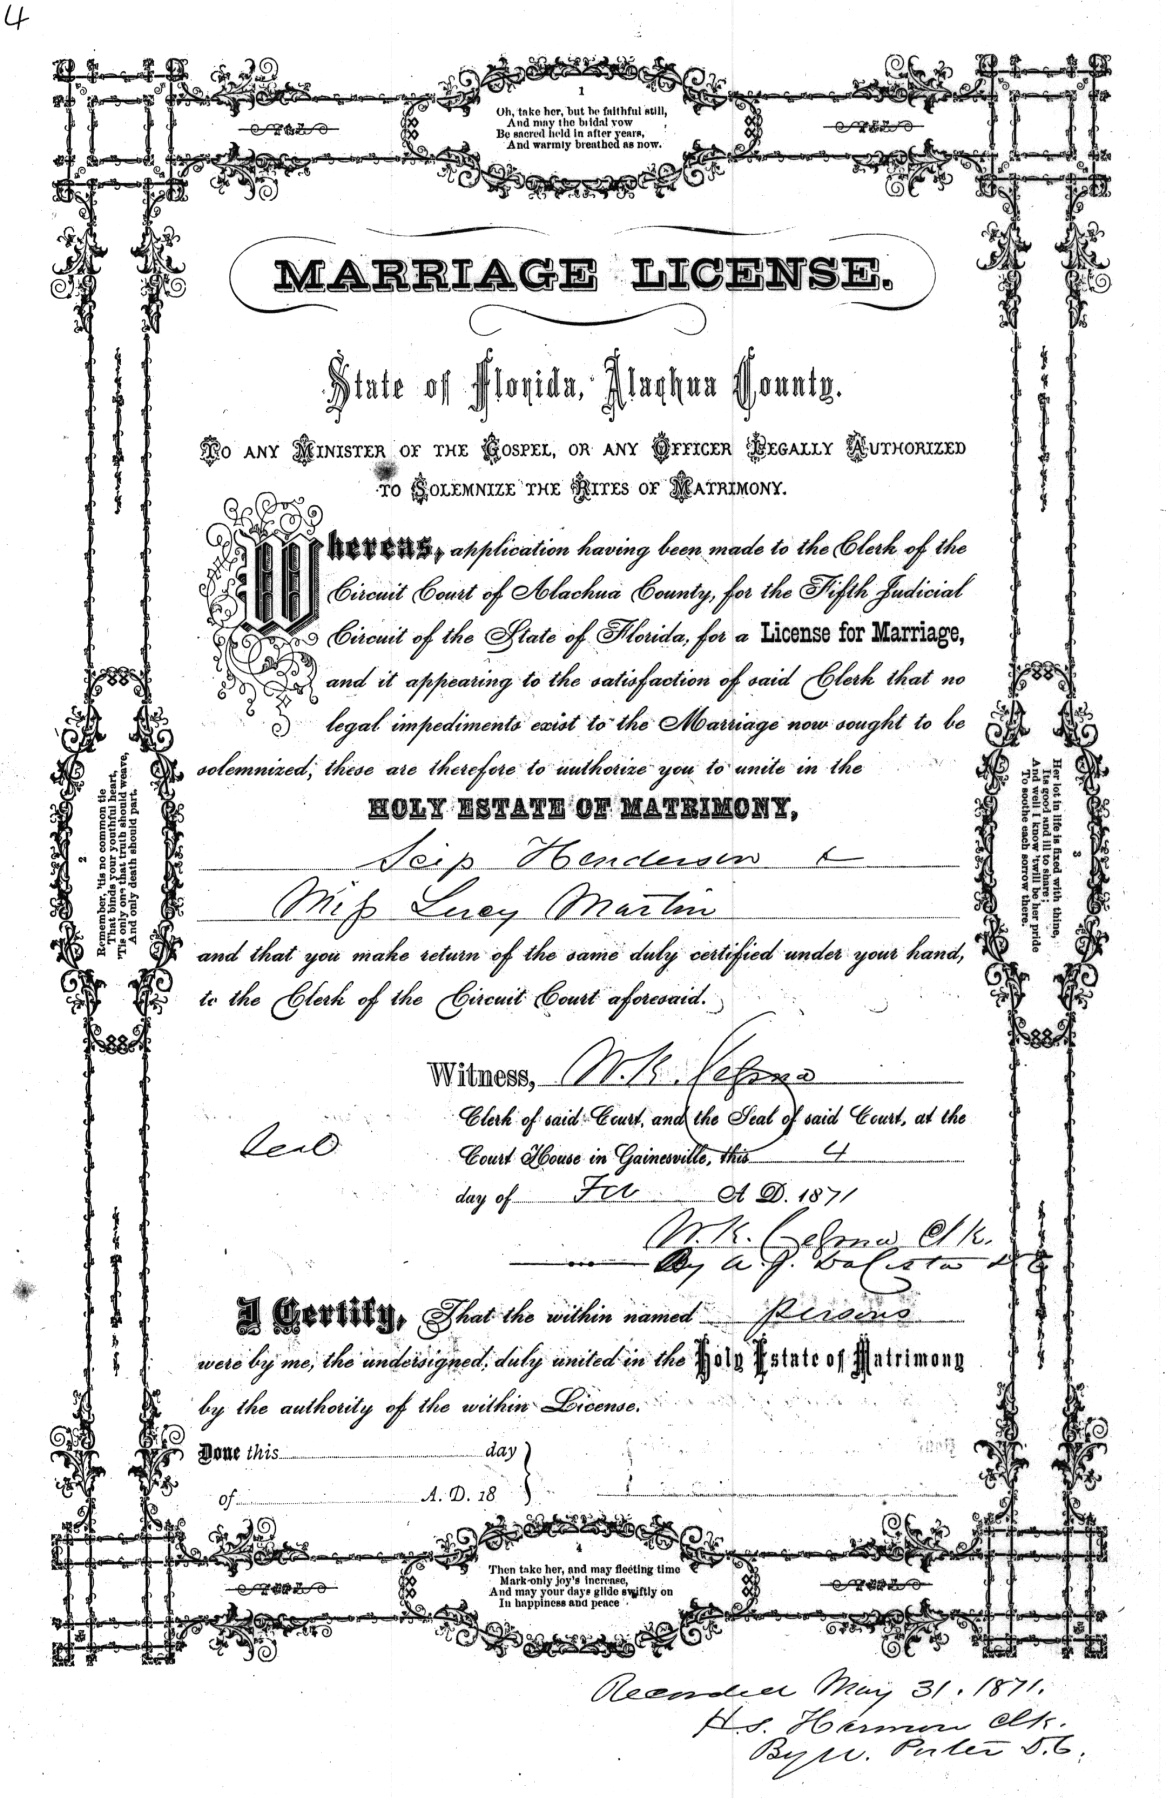 4
1
Oh, take her, but be faithful still,
And may the bidal vow
Be sacred held in after years,
And warmly breathed as now.
MARRIAGE LICENSE.
State of Florida, Alachua County.
To any Minister of the Gospel, or any Officer Legally Authorized
to Solemnize the Rites of Matrimony.
Whereas, application having been made to the Clerk of the
Circuit Court of Alachua County, for the Fifth Judicial
Circuit of the State of Florida, for a License for Marriage,
and it appearing to the satisfaction of said Clerk that no
legal impediments exist to the Marriage now sought to be
solemnized; these are therefore to authorize you to unite in the
HOLY ESTATE OF MATRIMONY,
Scip Henderson &
Miss Lucy Martin
and that you make return of the same duly certified under your hand,
to the Clerk of the Circuit Court aforesaid.
2
Remember, 'tis no common tie
That binds your youthful heart,
'Tis only one that truth should weave,
And only death should part.
3
Her lot in life is fixed with thine,
Its good and ill to share;
And well I know 'twill be her pride
To soothe each sorrow there.
Witness, W. K. Cessna
Clerk of said Court, and the Seal of said Court, at the
Seal
Court House in Gainesville, this 4
day of A. D. 1871
W. K. Cessna Clk.
By A. J.
I Certify, That the within named persons
were by me, the undersigned, duly united in the Holy Estate of Matrimony
by the authority of the within License.
Done this day
of A. D. 18
4
Then take her, and may fleeting time
Mark only joy's increase,
And may your days glide swiftly on
In happiness and peace.
Recorded May 31. 1871.
H. S. Harmon Clk.
By W. Porter D.C.